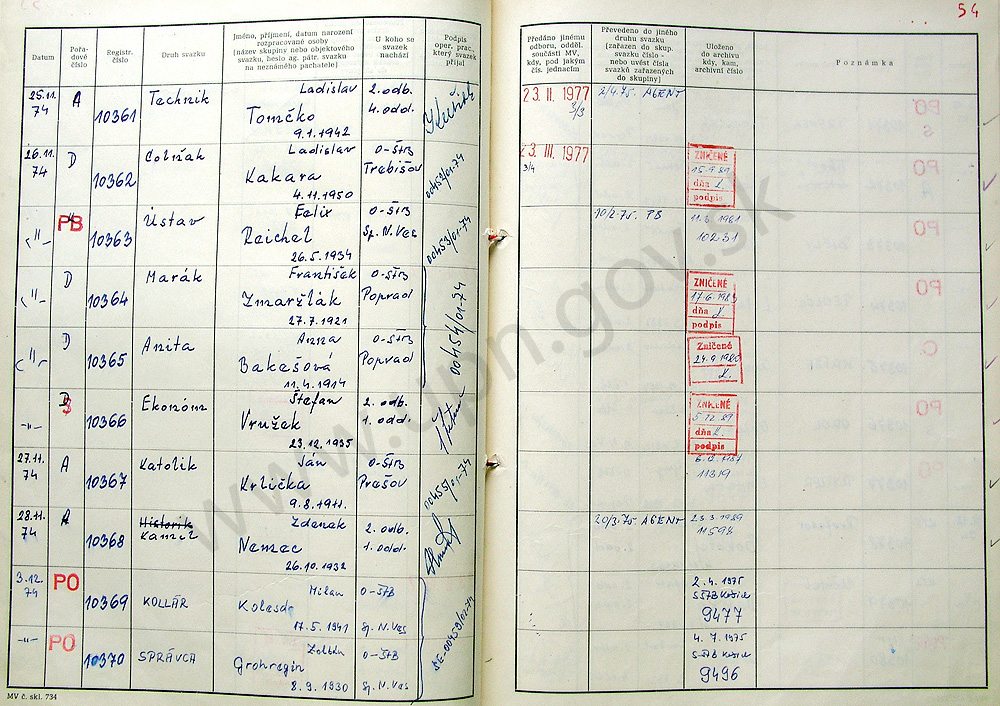 54
Datum
Pořadové číslo
Registr. číslo
Druh svazku
Jméno, příjmení, datum narození rozpracované osoby [název skupiny nebo objektového svazku, heslo ag. pátr. svazku na neznámého pachatele]
U koho se svazek nachází
Podpis oper. prac., který svazek přijal
Předáno jinému odboru, odděl. součásti MV, kdy, pod jakým čís. jednacím
Převedeno do jiného druhu svazku [zařazen do skup. svazku číslo - nebo uvést čísla svazků zařazených do skupiny]
Uloženo do archivu kdy, kam, archivní číslo
Poznámka
25.11. 74 A 10361 Technik Ladislav 2. odb.
Tomčko 4. odd.
9.1.1942
23. II. 1977 2/4.75. AGENT
3/3
26.11. 74 D 10362 Ladislav O-ŠTB
Kakara Trebišov
4.11.1950 00452/01-74
23. III. 1977
3/4
ZNIČENÉ
15.9.89
dňa
podpis
-"- PB 10363 Ústav Felix O-ŠTB
Reichel Sp. N. Ves
26.5.1934 00453/01-74
10/2.75. PB
10231
-"- D 10364 Marák František O-ŠTB
Zmaržlák Poprad
27.7.1921 00454/01-74
ZNIČENÉ
dňa
podpis
-"- D 10365 Anita Anna O-ŠTB
Bakešová Poprad
11.4.1914
Zničené
24.9.1980
-"- 10366 Ekonóm Štefan 2. odb.
Vružek 1. odd.
23.12.1935
ZNIČENÉ
5.12.89
dňa
podpis
27.11. 74 A 10367 Katolik Ján O-ŠTB
Krlička Prešov
9.8.1911. 00455/01-74
11319
28.11. 74 A 10368 Historik Zdenek 2. odb.
Kamil Nemec 1. odd.
26.10.1932
20/3.75. AGENT 23.3.1989
11598
3.12. 74 PO 10369 KOLLÁR Milan O-ŠTB
17.5.1941 Sp. N. Ves
2.4.1975
S-ŠTB Košice
9477
-"- PO 10370 SPRÁVCA O-ŠTB
8.9.1930 Sp. N. Ves
4.7.1975
S-ŠTB Košice
9496
MV č. skl. 734
www.upn.gov.sk